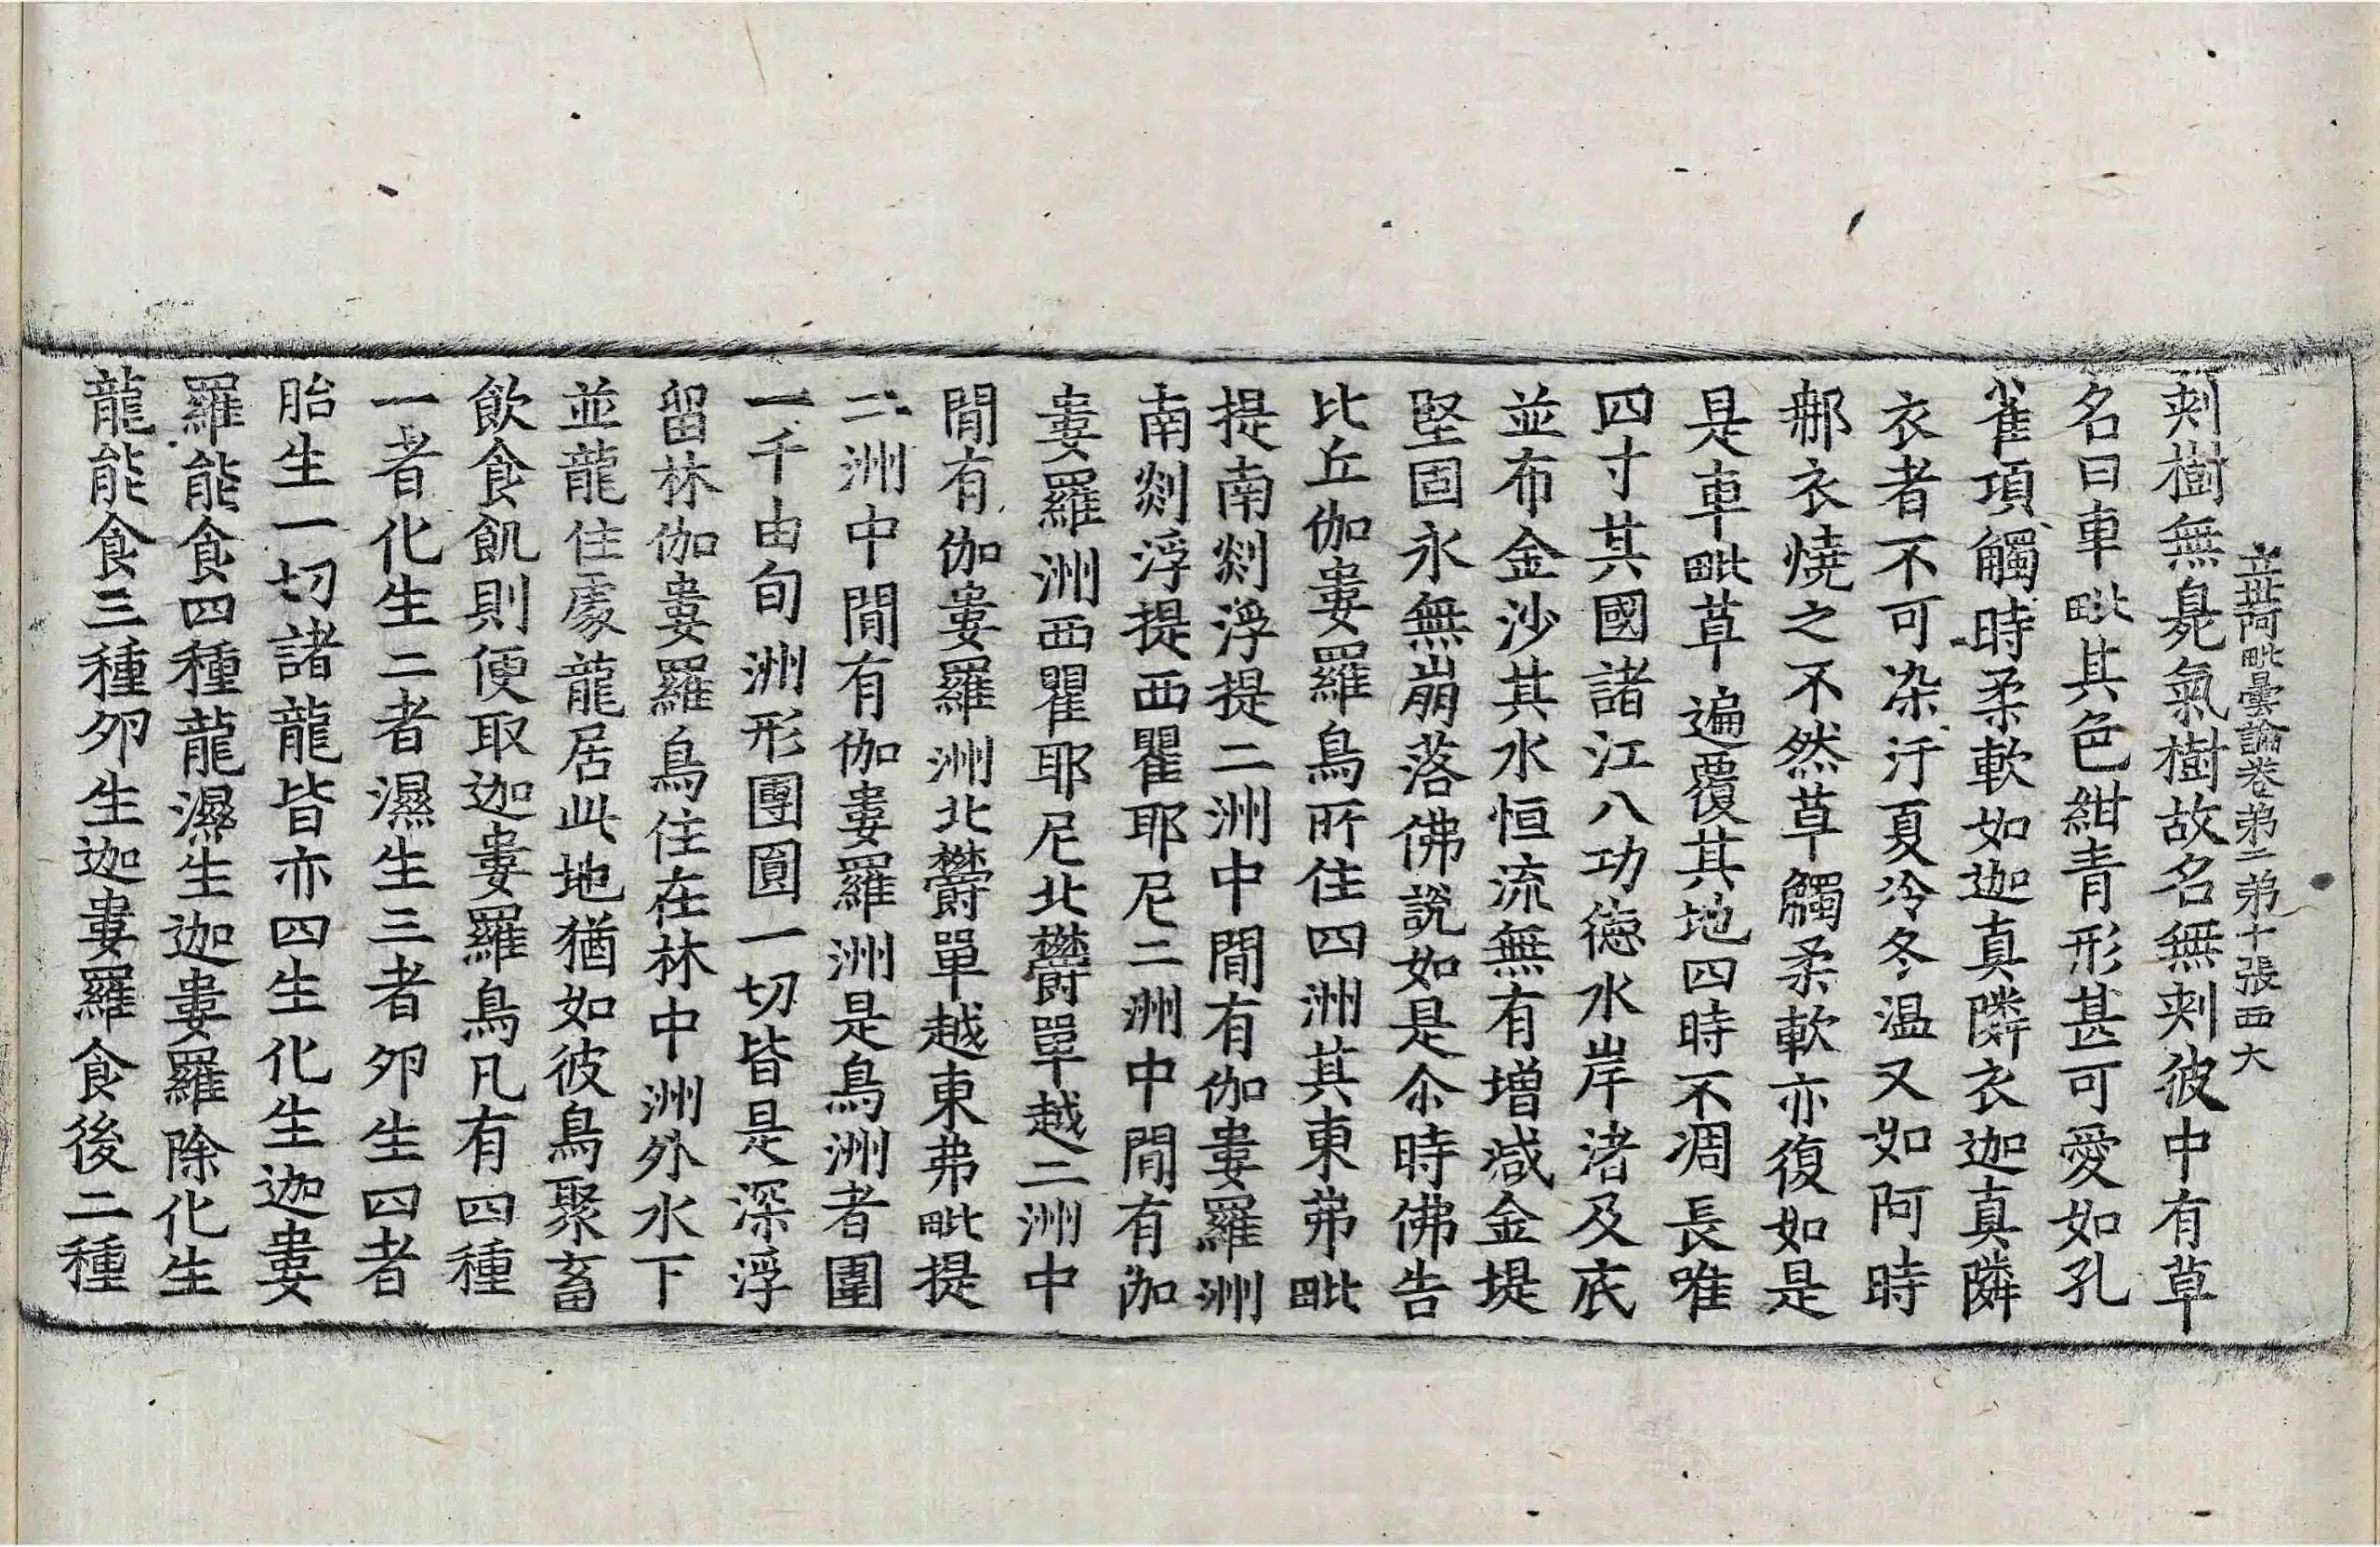 立世阿毗曇論卷弟二弟十張西大
刾樹無臰氣樹故名無刾彼中有草
名曰車毗其色紺青形甚可愛如孔
雀項觸時柔軟如迦真隣衣迦真隣
衣者不可染汙夏冷冬温又如阿時
鄅衣燒之不然草觸柔軟亦復如是
是車毗草遍覆其地四時不凋長唯
四寸其國諸江八功德水岸渚及底
並布金沙其水恒流無有增減金堤
堅固永無崩落佛說如是尒時佛告
比丘伽婁羅鳥所住四洲其東弗毗
提南剡浮提二洲中閒有伽婁羅洲
南剡浮提西瞿耶尼二洲中閒有伽
婁羅洲西瞿耶尼北欝單越二洲中
閒有伽婁羅洲北欝單越東弗毗提
二洲中閒有伽婁羅洲是鳥洲者圍
一千由旬洲形團圓一切皆是深浮
留林伽婁羅鳥住在林中洲外水下
並龍住處龍居此地猶如彼鳥聚畜
飲食飢則便取迦婁羅鳥凡有四種
一者化生二者濕生三者夘生四者
胎生一切諸龍皆亦四生化生迦婁
羅能食四種龍濕生迦婁羅除化生
龍能食三種夘生迦婁羅食後二種